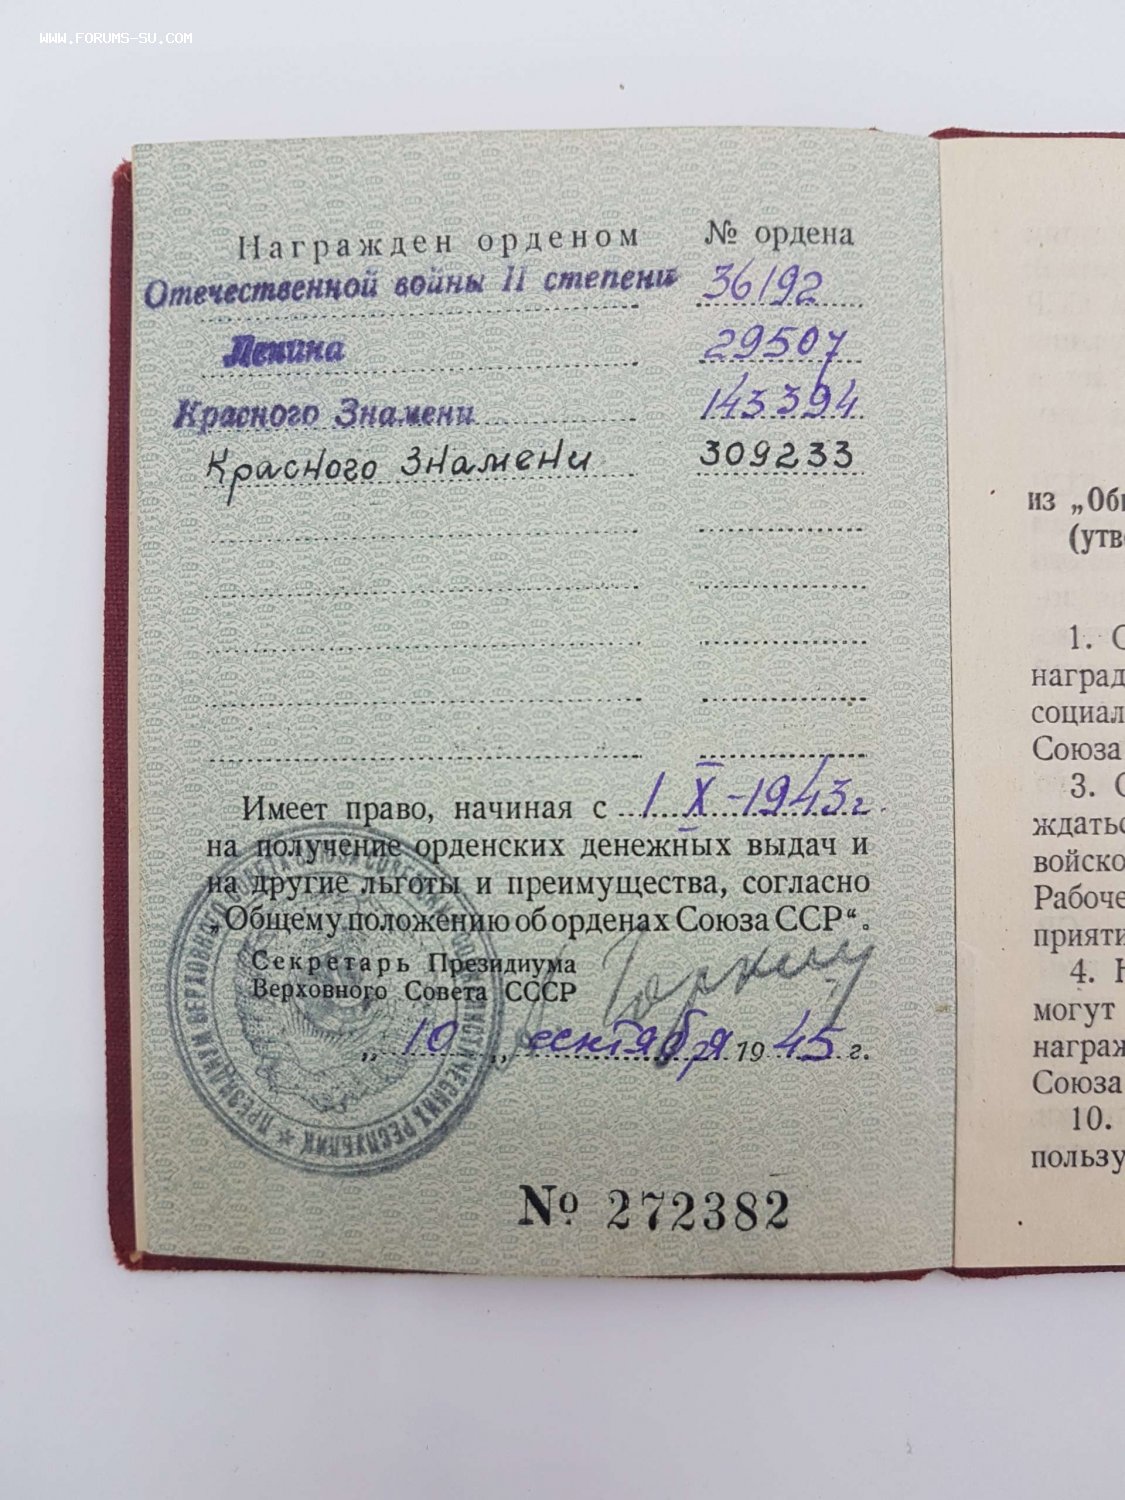 WWW.FORUMS-SU.COM
Награжден орденом № ордена
Отечественной войны II степени 36192
Ленина 29507
Красного Знамени 143394
Красного Знамени 309233
Имеет право, начиная с 1 X-1943г.
на получение орденских денежных выдач и
на другие льготы и преимущества, согласно
„Общему положению об орденах Союза ССР“.
Секретарь Президиума
Верховного Совета СССР
Горкин
„10„ сентября 1945 г.
ПРЕЗИДИУМ ВЕРХОВНОГО СОВЕТА СОЮЗА СОВЕТСКИХ СОЦИАЛИСТИЧЕСКИХ РЕСПУБЛИК
№ 272382
из „Об
(утв
1. С
наград
социал
Союза
3. С
ждатьс
войско
Рабоче
прияти
4. Н
могут
награж
Союза
10.
пользу